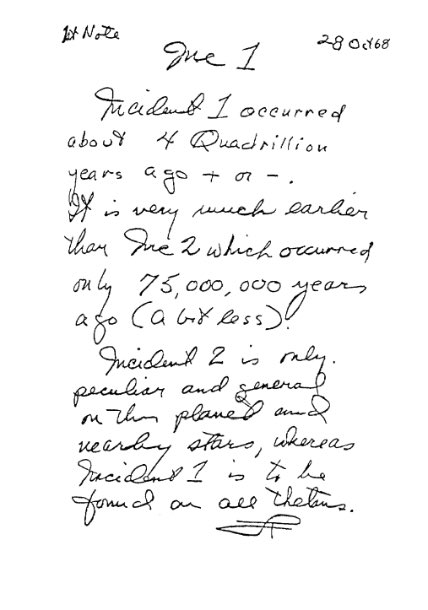 1st Note
28 Oct 68
Inc 1
Incident 1 occurred
about 4 Quadrillion
years ago + or -.
It is very much earlier
than Inc 2 which occurred
only 75,000,000 years
ago (a bit less)!
Incident 2 is only
peculiar and general
on this planet and
nearby stars, whereas
Incident 1 is to be
found on all thetans.